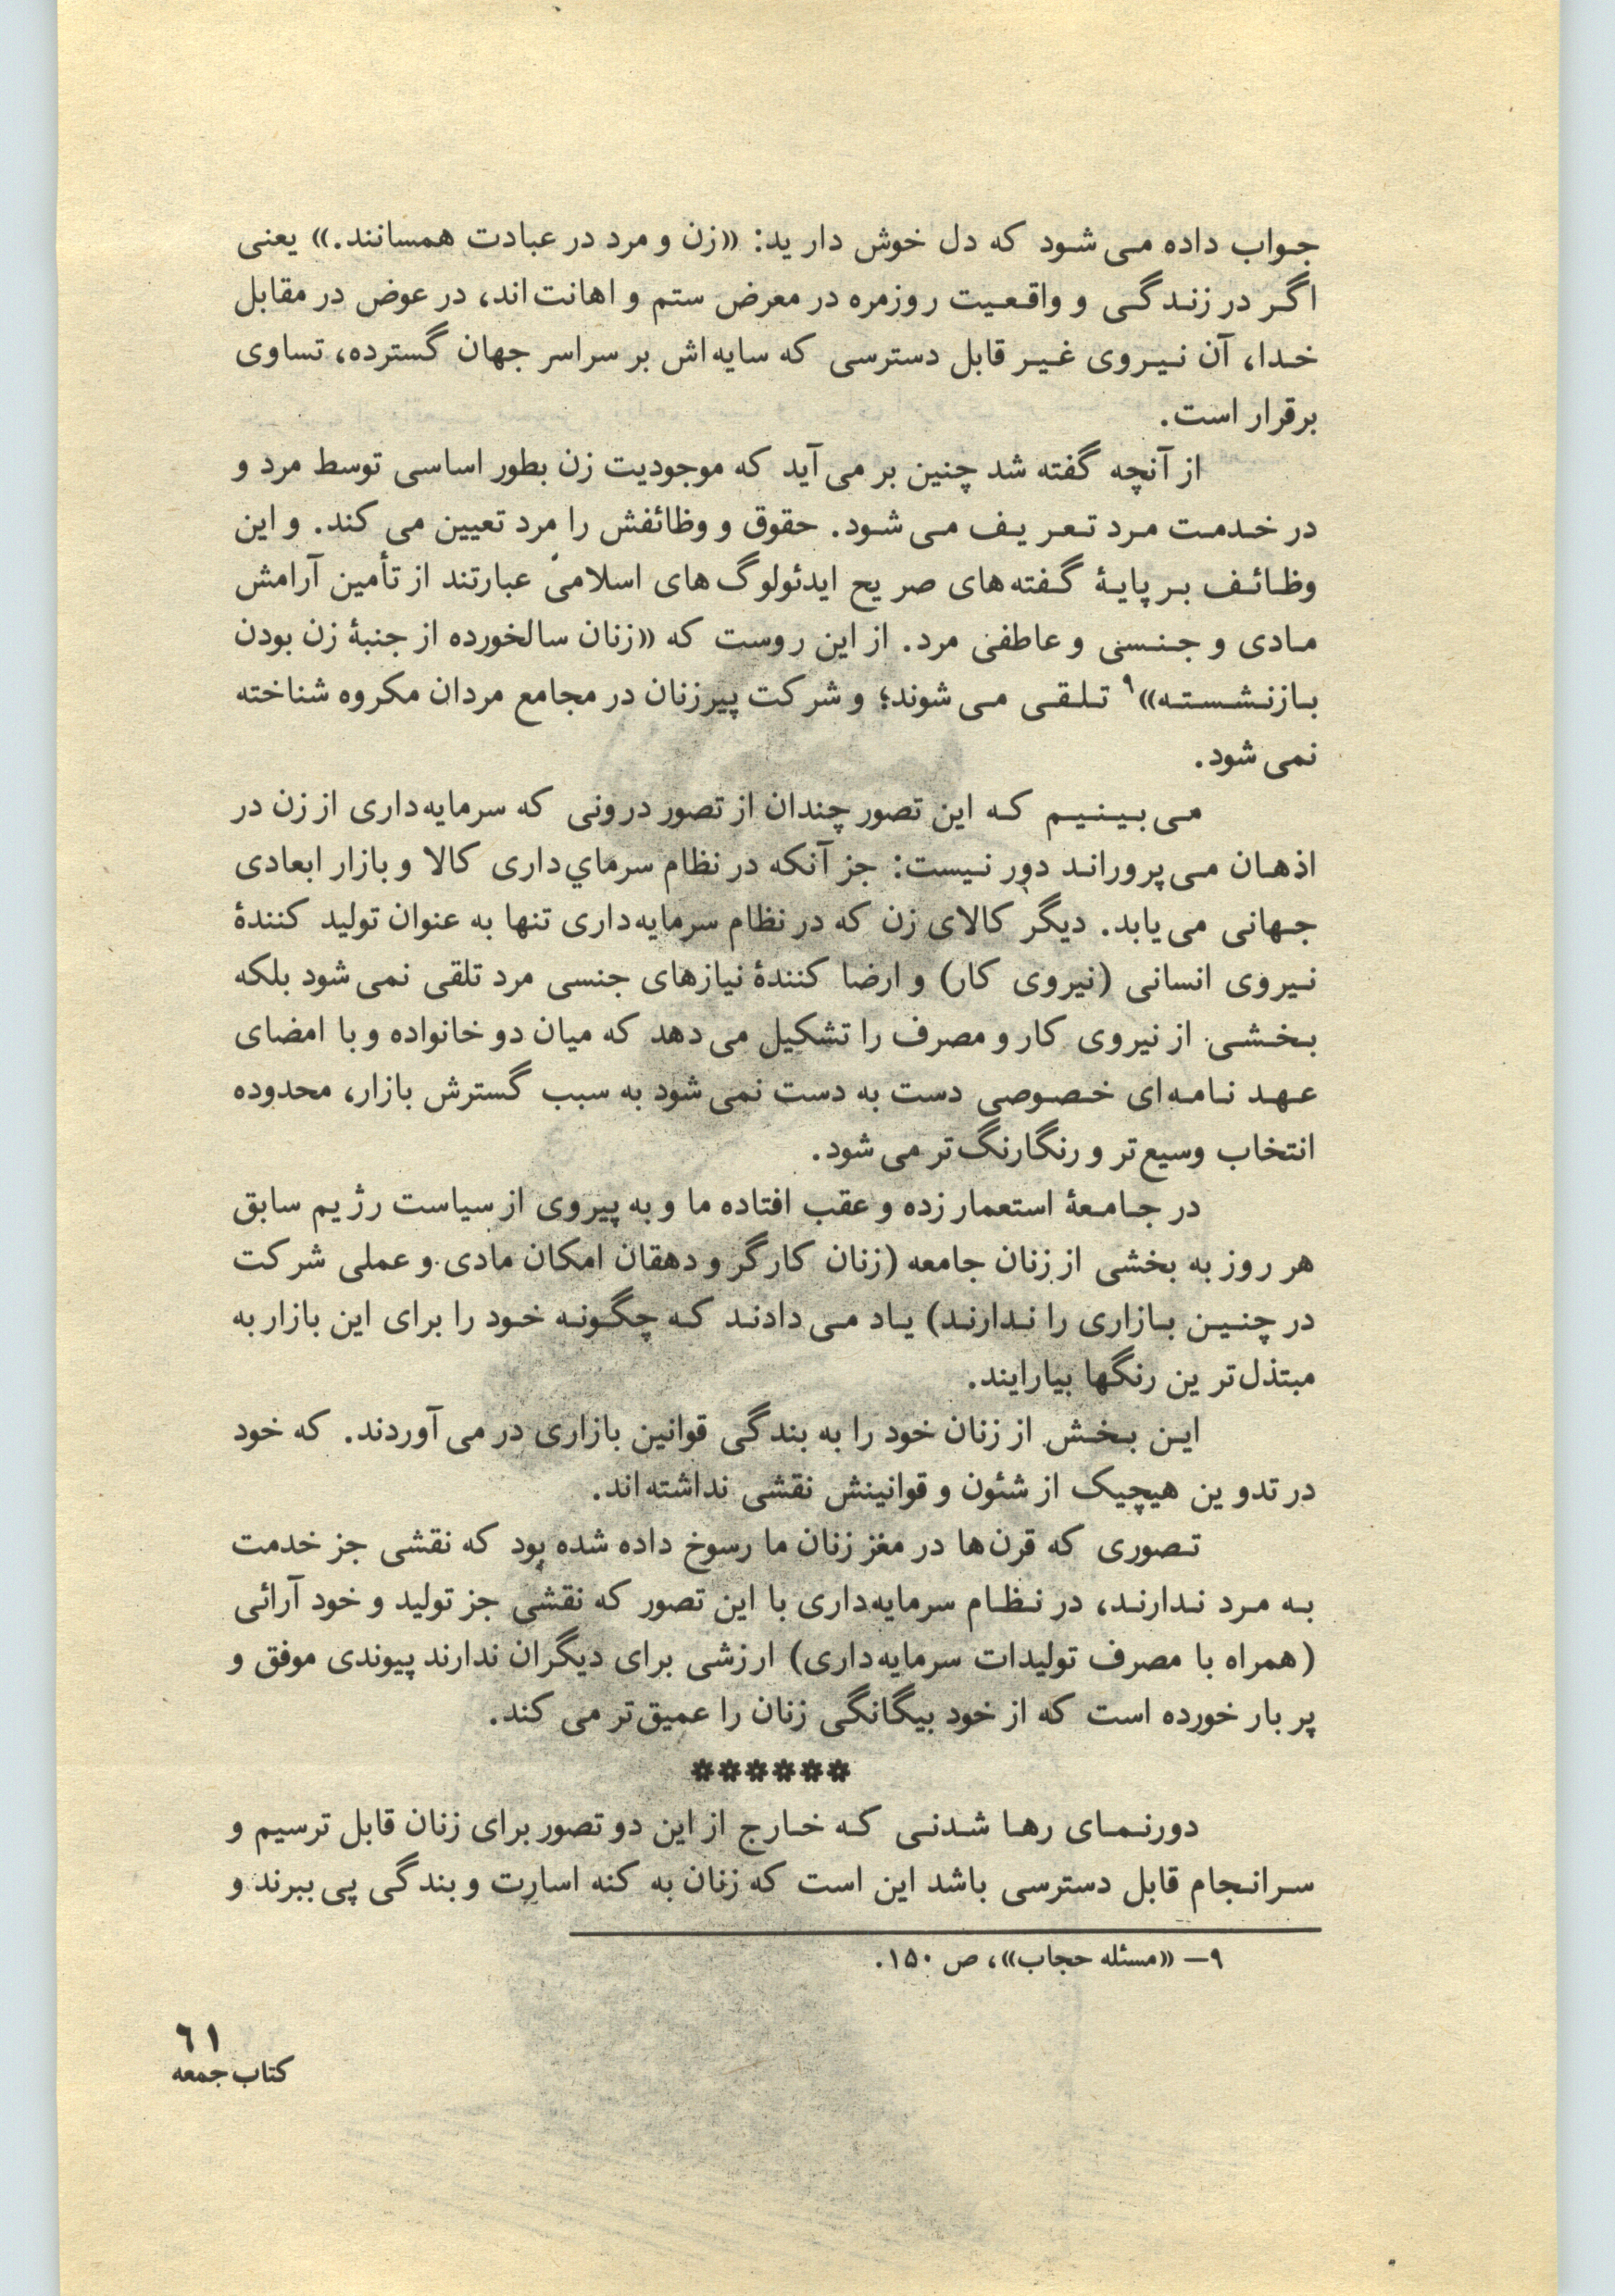 جواب داده می‌شود که دل خوش دارید: «زن و مرد در عبادت همسانند.» یعنی
اگر در زندگی و واقعیت روزمره در معرض ستم و اهانت‌اند، در عوض در مقابل
خدا، آن نیروی غیر قابل دسترسی که سایه‌اش بر سراسر جهان گسترده، تساوی
برقرار است.
از آنچه گفته شد چنین بر می‌آید که موجودیت زن بطور اساسی توسط مرد و
در خدمت مرد تعریف می‌شود. حقوق و وظائفش را مرد تعیین می‌کند. و این
وظائف بر پایهٔ گفته‌های صریح ایدئولوگ‌های اسلامی عبارتند از تأمین آرامش
مادی و جنسی و عاطفی مرد. از این روست که «زنان سالخورده از جنبهٔ زن بودن
بازنشسته»۹ تلقی می‌شوند؛ و شرکت پیرزنان در مجامع مردان مکروه شناخته
نمی‌شود.
می‌بینیم که این تصور چندان از تصور درونی که سرمایه‌داری از زن در
اذهان می‌پروراند دور نیست: جز آنکه در نظام سرماي‌داری کالا و بازار ابعادی
جهانی می‌یابد. دیگر کالای زن که در نظام سرمایه‌داری تنها به عنوان تولید کنندهٔ
نیروی انسانی (نیروی کار) و ارضا کنندهٔ نیازهای جنسی مرد تلقی نمی‌شود بلکه
بخشی از نیروی کار و مصرف را تشکیل می‌دهد که میان دو خانواده و با امضای
عهد نامه‌ای خصوصی دست به دست نمی‌شود به سبب گسترش بازار، محدوده
انتخاب وسیع‌تر و رنگارنگ‌تر می‌شود.
در جامعهٔ استعمار زده و عقب افتاده ما و به پیروی از سیاست رژیم سابق
هر روز به بخشی از زنان جامعه (زنان کارگر و دهقان امکان مادی و عملی شرکت
در چنین بازاری را ندارند) یاد می‌دادند که چگونه خود را برای این بازار به
مبتذل‌ترین رنگها بیارایند.
این بخش از زنان خود را به بندگی قوانین بازاری در می‌آوردند. که خود
در تدوین هیچیک از شئون و قوانینش نقشی نداشته‌اند.
تصوری که قرن‌ها در مغز زنان ما رسوخ داده شده بود که نقشی جز خدمت
به مرد ندارند، در نظام سرمایه‌داری با این تصور که نقشی جز تولید و خود آرائی
(همراه با مصرف تولیدات سرمایه‌داری) ارزشی برای دیگران ندارند پیوندی موفق و
پر بار خورده است که از خود بیگانگی زنان را عمیق‌تر می‌کند.
******
دورنمای رها شدنی که خارج از این دو تصور برای زنان قابل ترسیم و
سرانجام قابل دسترسی باشد این است که زنان به کنه اسارت و بندگی پی ببرند و
۹— «مسئله حجاب»، ص ۱۵۰.
۶۱
کتاب جمعه